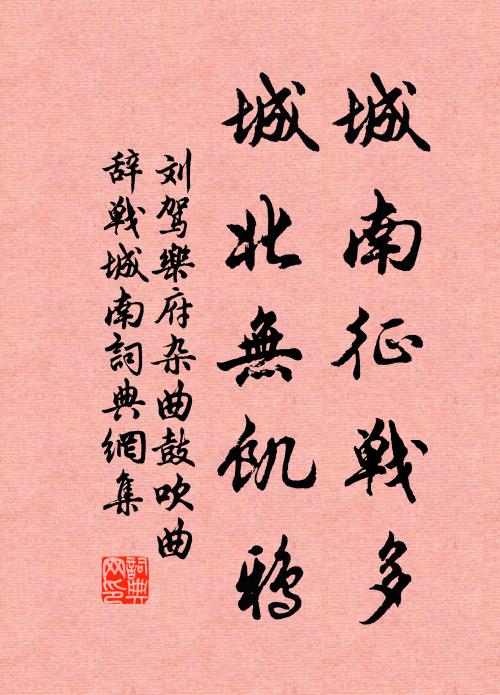 城南征戦多
城北無飢鴉
刘駕樂府杂曲鼓吹曲
辞戦城南詞典網集
詞典
网印